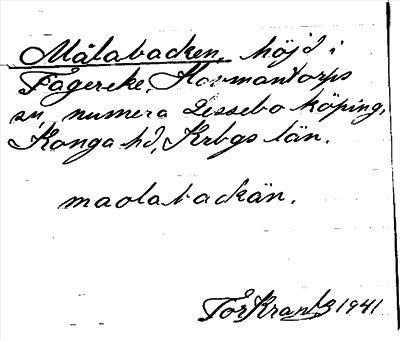 Målabacken, höjd i
Fagereke, Hovmantorps
sn, numera Lessebo köping,
Konga hd, Krbgs län.
maolabackän.
Tor Krantz 1941